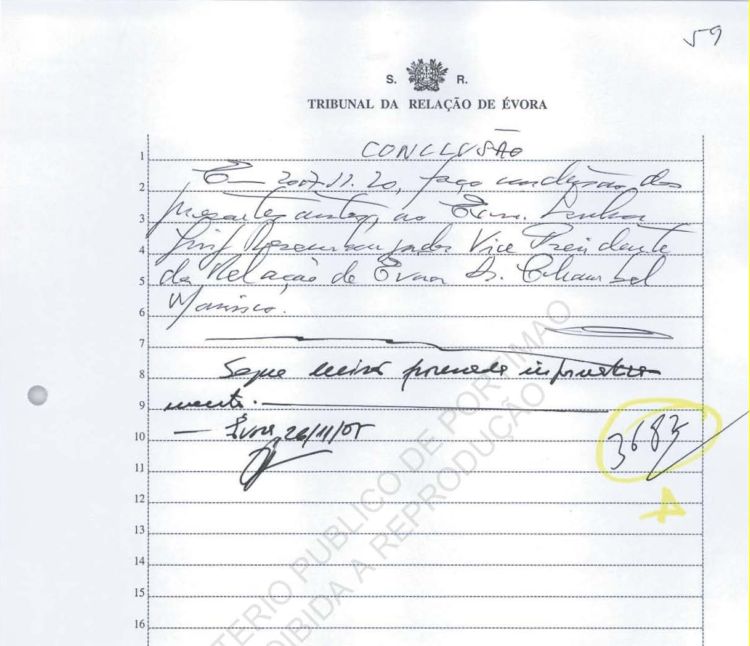 59
S. R.
TRIBUNAL DA RELAÇÃO DE ÉVORA
CONCLUSÃO
1
Em 2007.11.20, faço conclusão dos
2
presentes autos, ao Exm. Senhor
3
Juiz Desembargador Vice Presidente
4
da Relação de Évora Dr. Chambel
5
Mourisco.
6
7
Segue decisão processada informatica-
8
mente.
9
Évora 26/11/07
10
3683
11
12
13
14
15
16
MINISTERIO PUBLICO DE PORTIMAO
PROIBIDA A REPRODUÇÃO